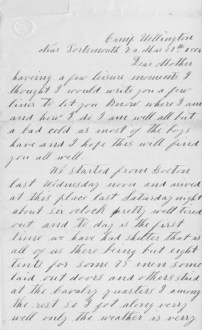 Camp Wellington
near Portsmouth Va. Mar
Dear Mother
haveing a few leisure moments I
thought I would write you a few
lines to let you know where I am
and how I do I am well all but
a bad cold as most of the boys
have and I hope this will find
you all well.
We started from Boston
last Wednesday noon and arived
at this place last Saturday night
about six oclock pretty well tired
out and to day is the first
time we have had shelter that is
all of us there being but eight
tents for some 75 men some
laid out doors and others staid
at the cavalry quarters I among
the rest so I got along very
well only the weather is very